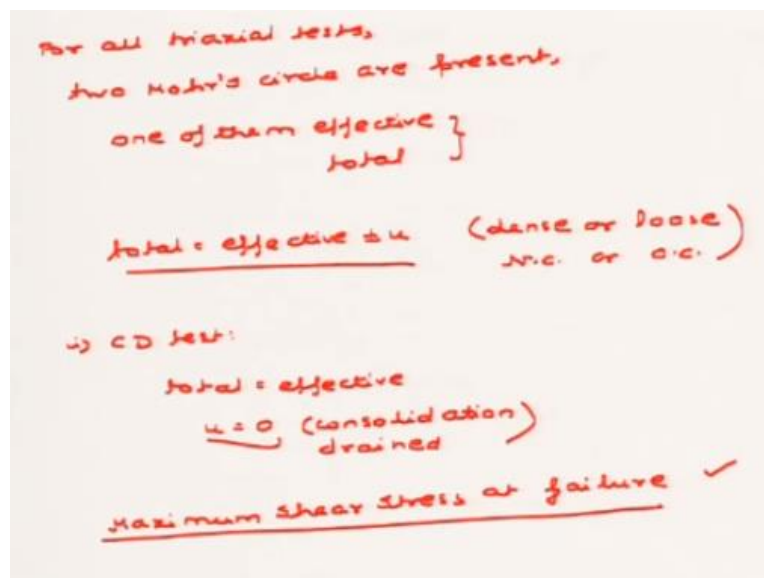 For all triaxial tests,
two Mohr's circle are present,
one of them effective }
total
total = effective ± u (dense or loose)
N.C. or O.C.
i) CD test:
total = effective
u = 0 (consolidation)
drained
Maximum shear stress at failure ✓